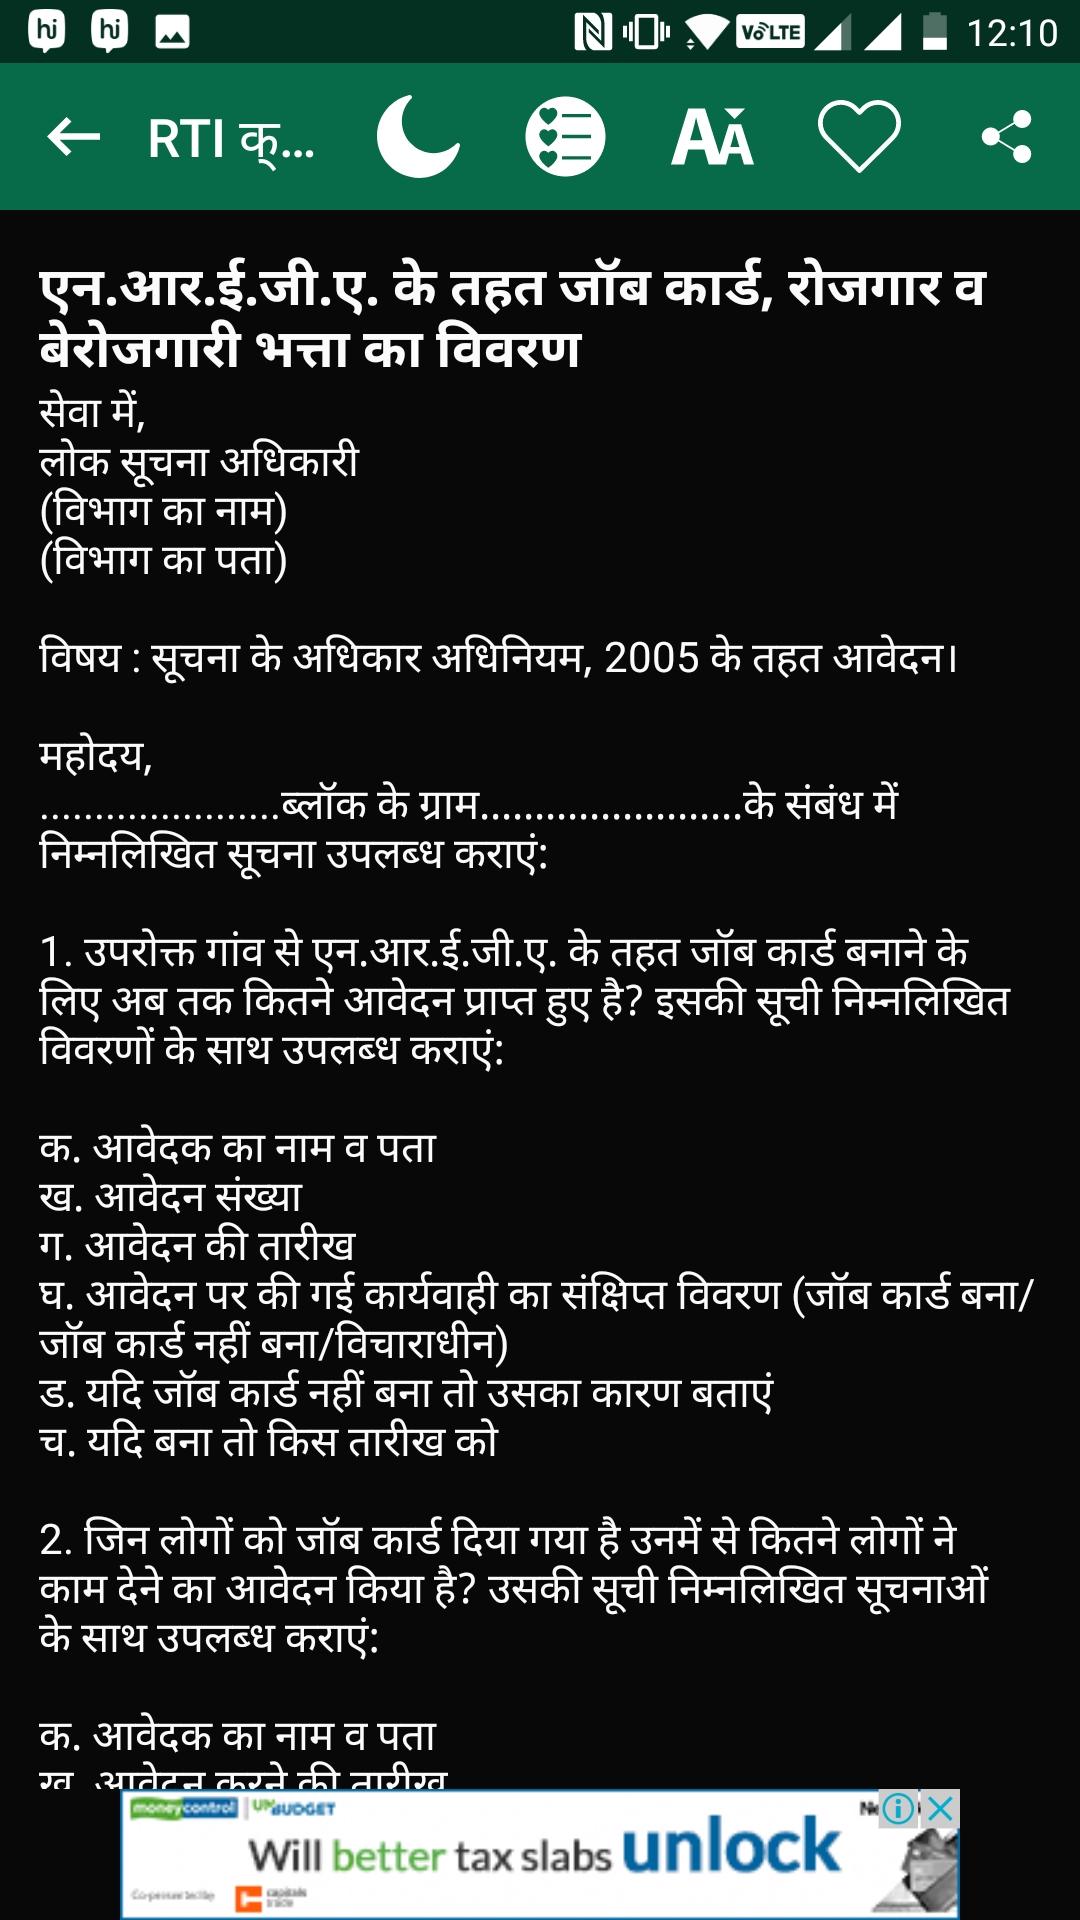 hi hi VoLTE 12:10
RTI क्...
एन.आर.ई.जी.ए. के तहत जॉब कार्ड, रोजगार व
बेरोजगारी भत्ता का विवरण
सेवा में,
लोक सूचना अधिकारी
(विभाग का नाम)
(विभाग का पता)
विषय : सूचना के अधिकार अधिनियम, 2005 के तहत आवेदन।
महोदय,
......................ब्लॉक के ग्राम........................के संबंध में
निम्नलिखित सूचना उपलब्ध कराएं:
1. उपरोक्त गांव से एन.आर.ई.जी.ए. के तहत जॉब कार्ड बनाने के
लिए अब तक कितने आवेदन प्राप्त हुए है? इसकी सूची निम्नलिखित
विवरणों के साथ उपलब्ध कराएं:
क. आवेदक का नाम व पता
ख. आवेदन संख्या
ग. आवेदन की तारीख
घ. आवेदन पर की गई कार्यवाही का संक्षिप्त विवरण (जॉब कार्ड बना/
जॉब कार्ड नहीं बना/विचाराधीन)
ड. यदि जॉब कार्ड नहीं बना तो उसका कारण बताएं
च. यदि बना तो किस तारीख को
2. जिन लोगों को जॉब कार्ड दिया गया है उनमें से कितने लोगों ने
काम देने का आवेदन किया है? उसकी सूची निम्नलिखित सूचनाओं
के साथ उपलब्ध कराएं:
क. आवेदक का नाम व पता
ख. आवेदन करने की तारीख
moneycontrol
BUDGET
Will better tax slabs unlock
Co-presented by
capitals